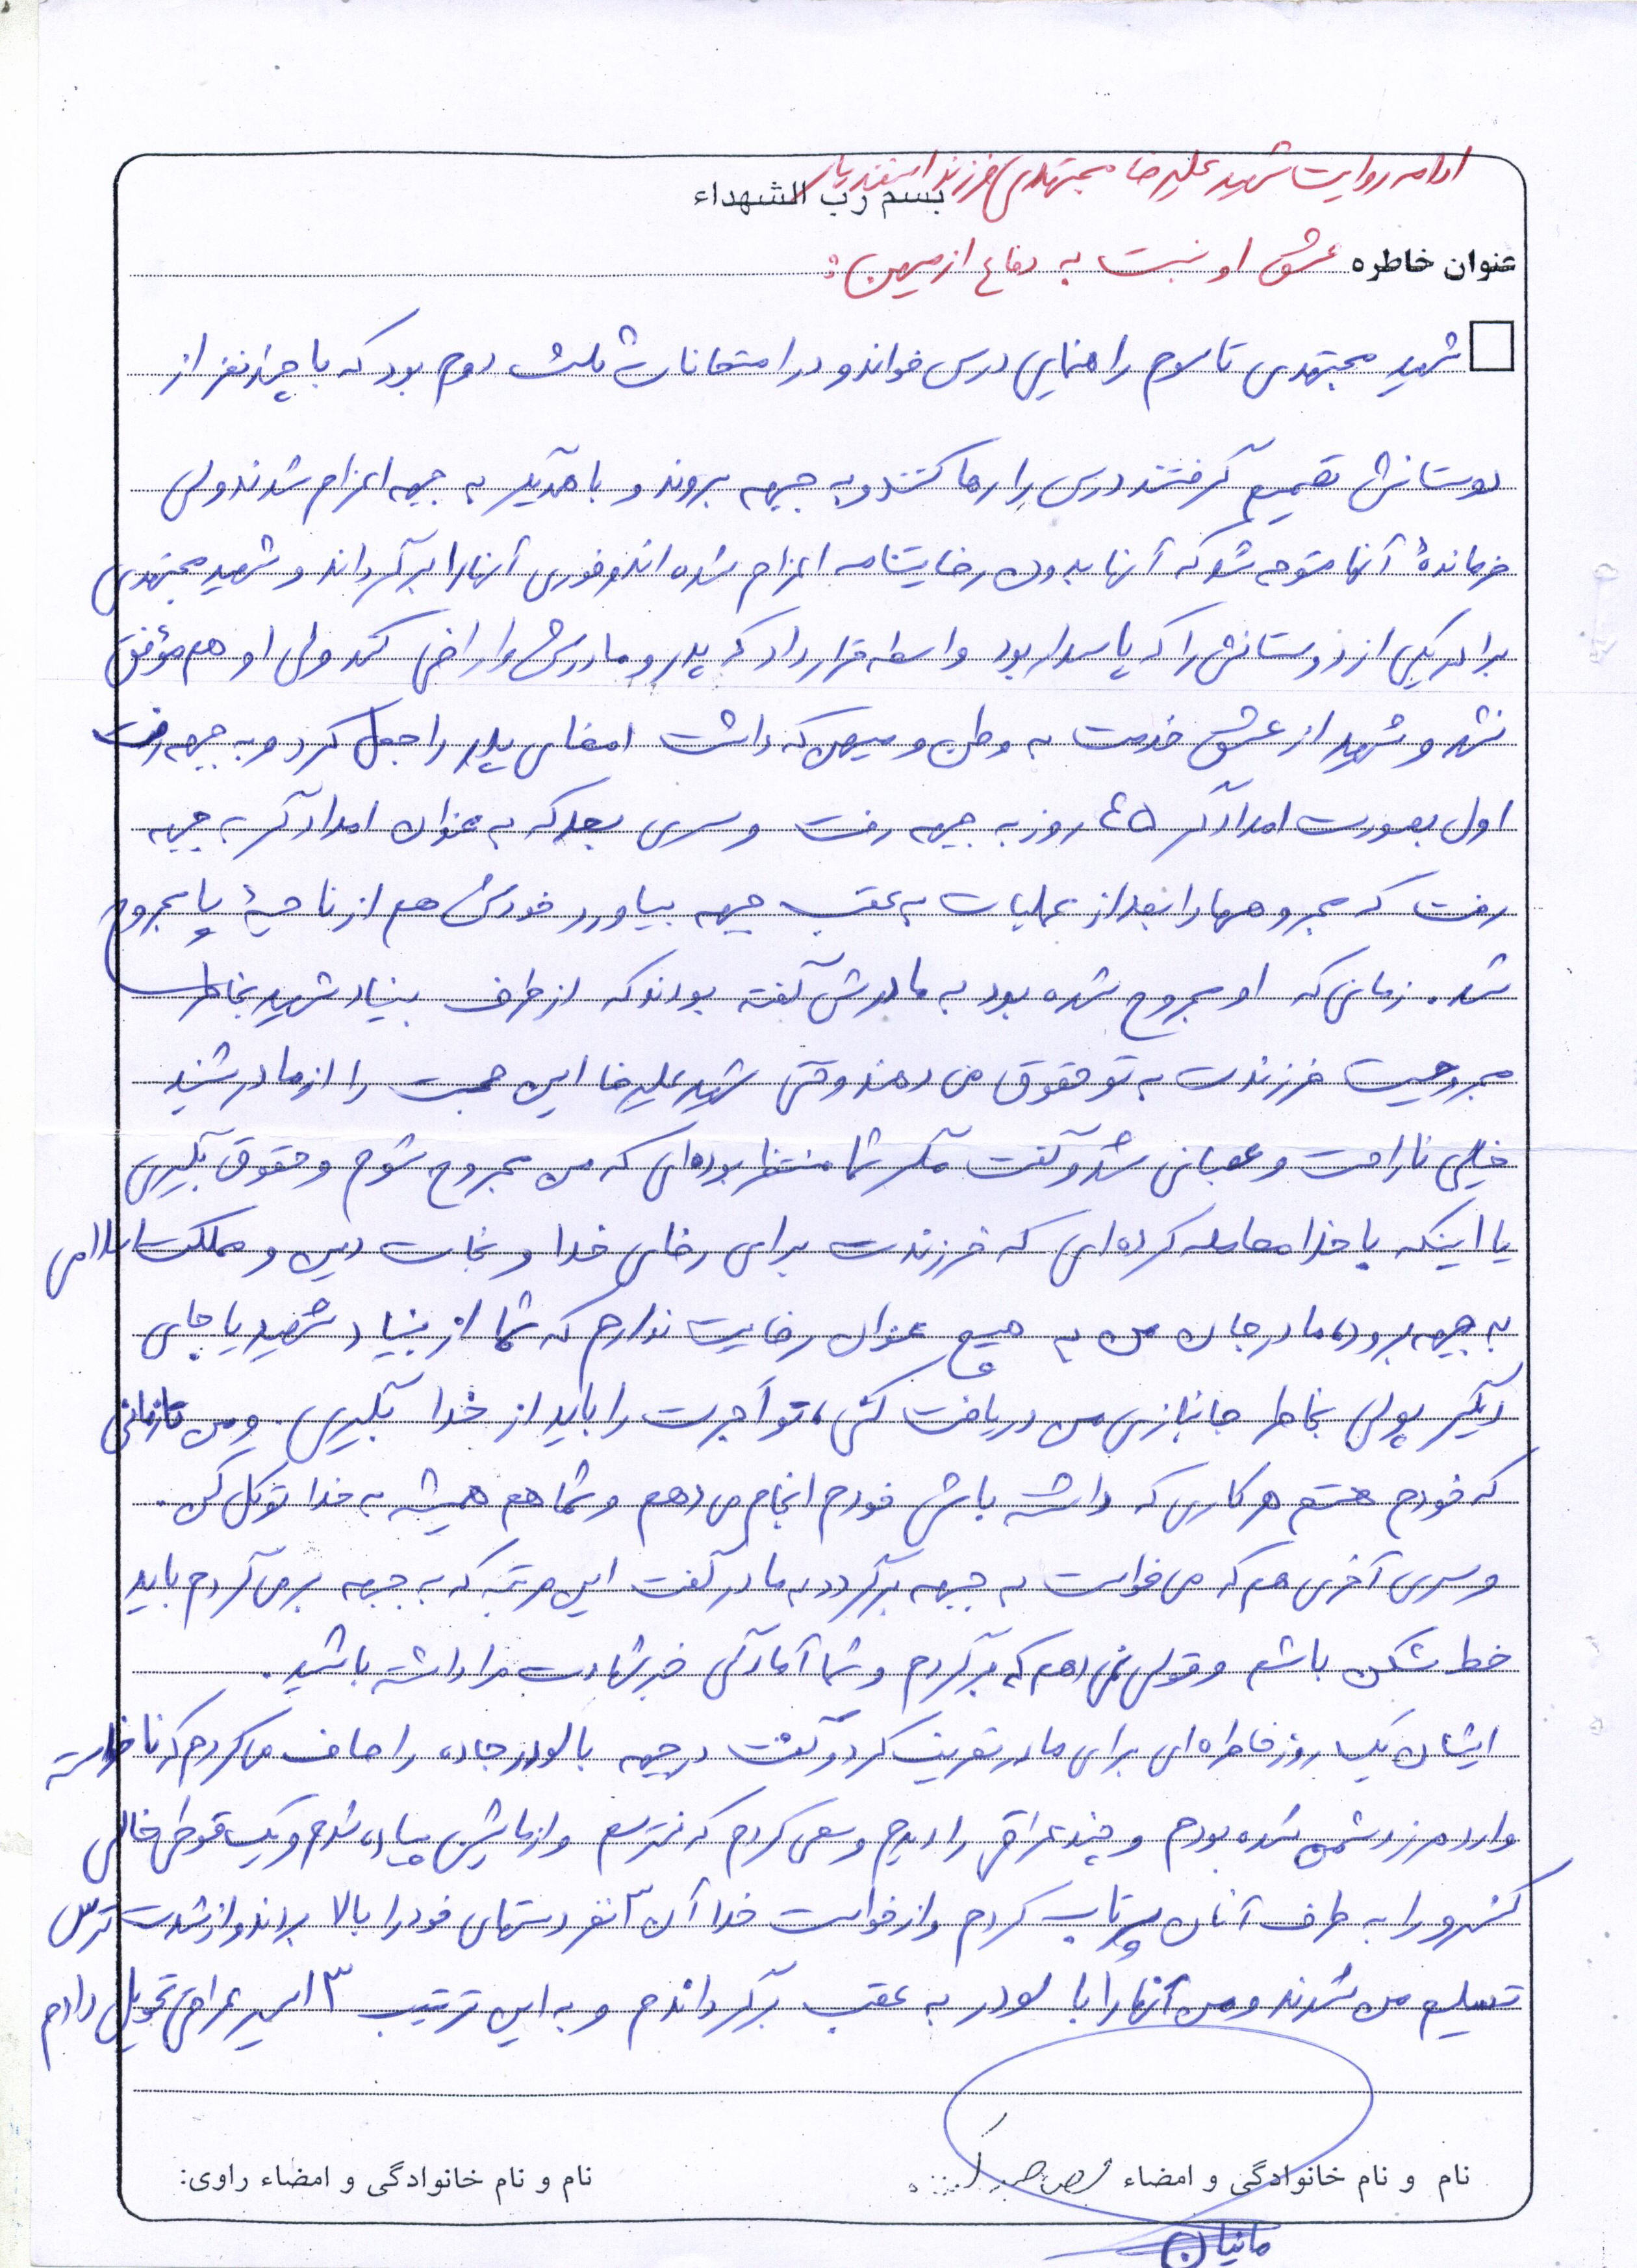 ادامه روایت شهید علیرضا مجتهدی فرزند اسفندیار
بسم رب الشهداء
عنوان خاطره عشق او نسبت به دفاع از میهن:
شهید مجتهدی تا سوم راهنمایی درس خواند و در امتحانات ثلث دوم بود که با چند نفر از
دوستانش تصمیم گرفتند درس را رها کنند و به جبهه بروند و با هم به جبهه اعزام شدند ولی
فرماندۀ آنها متوجه شد که آنها بدون رضایتنامه اعزام شده اند و فوری آنها را برگرداند و شهید مجتهدی
برادر یکی از دوستانش را که پاسدار بود واسطه قرار داد که پدر و مادرش را راضی کند ولی او هم موفق
نشد و شهید از عشق خدمت به وطن و میهن که داشت امضای پدر را جعل کرد و به جبهه رفت
اول بصورت امدادگر ٤٥ روز به جبهه رفت و سری بعد که به عنوان امدادگر به جبهه
رفت که مجروحها را بعد از عملیات به عقب جبهه بیاورد خودش هم از ناحیۀ پا مجروح
شد. زمانی که او مجروح شده بود به مادرش گفته بودند که از طرف بنیاد شهید بخاطر
مجروحیت فرزندت به تو حقوق می دهند وقتی شهید علیرضا این صحبت را از مادر شنید
خیلی ناراحت و عصبانی شد و گفت مگر شما منتظر بوده ای که من مجروح شوم و حقوق بگیری
یا اینکه با خدا معامله کرده ای که فرزندت برای رضای خدا و نجات دین و مملکت اسلامی
به جبهه برود، مادر جان من به هیچ عنوان رضایت ندارم که شما از بنیاد شهید یا جای
دیگر پولی بخاطر جانبازی من دریافت کنی، تو اجرت را باید از خدا بگیری. و من تا زمانی
که خودم هستم هر کاری که داشته باشی خودم انجام می دهم و شما هم همیشه به خدا توکل کن.
و سری آخری هم که می خواست به جبهه برگردد به مادر گفت این مرتبه که به جبهه برمی گردم باید
خط شکن باشم و قولی نمی دهم که برگردم و شما آمادگی خبر شهادت مرا داشته باشید.
ایشان یک روز خاطره ای برای مادر تعریف کرد و گفت در جبهه با لودر جاده را صاف می کردم که ناخواسته
وارد مرز دشمن شده بودم و چند عراقی را دیدم و سعی کردم که نترسم و از ماشین پیاده شدم و یک قوطی خالی
کنسرو را به طرف آنان پرتاب کردم و از خواست خدا آن ٣ نفر دستهای خود را بالا بردند و از شدت ترس
تسلیم من شدند و من آنها را با لودر به عقب برگرداندم و به این ترتیب ٣ اسیر عراقی تحویل دادم
نام و نام خانوادگی و امضاء
نام و نام خانوادگی و امضاء راوی:
مانیان